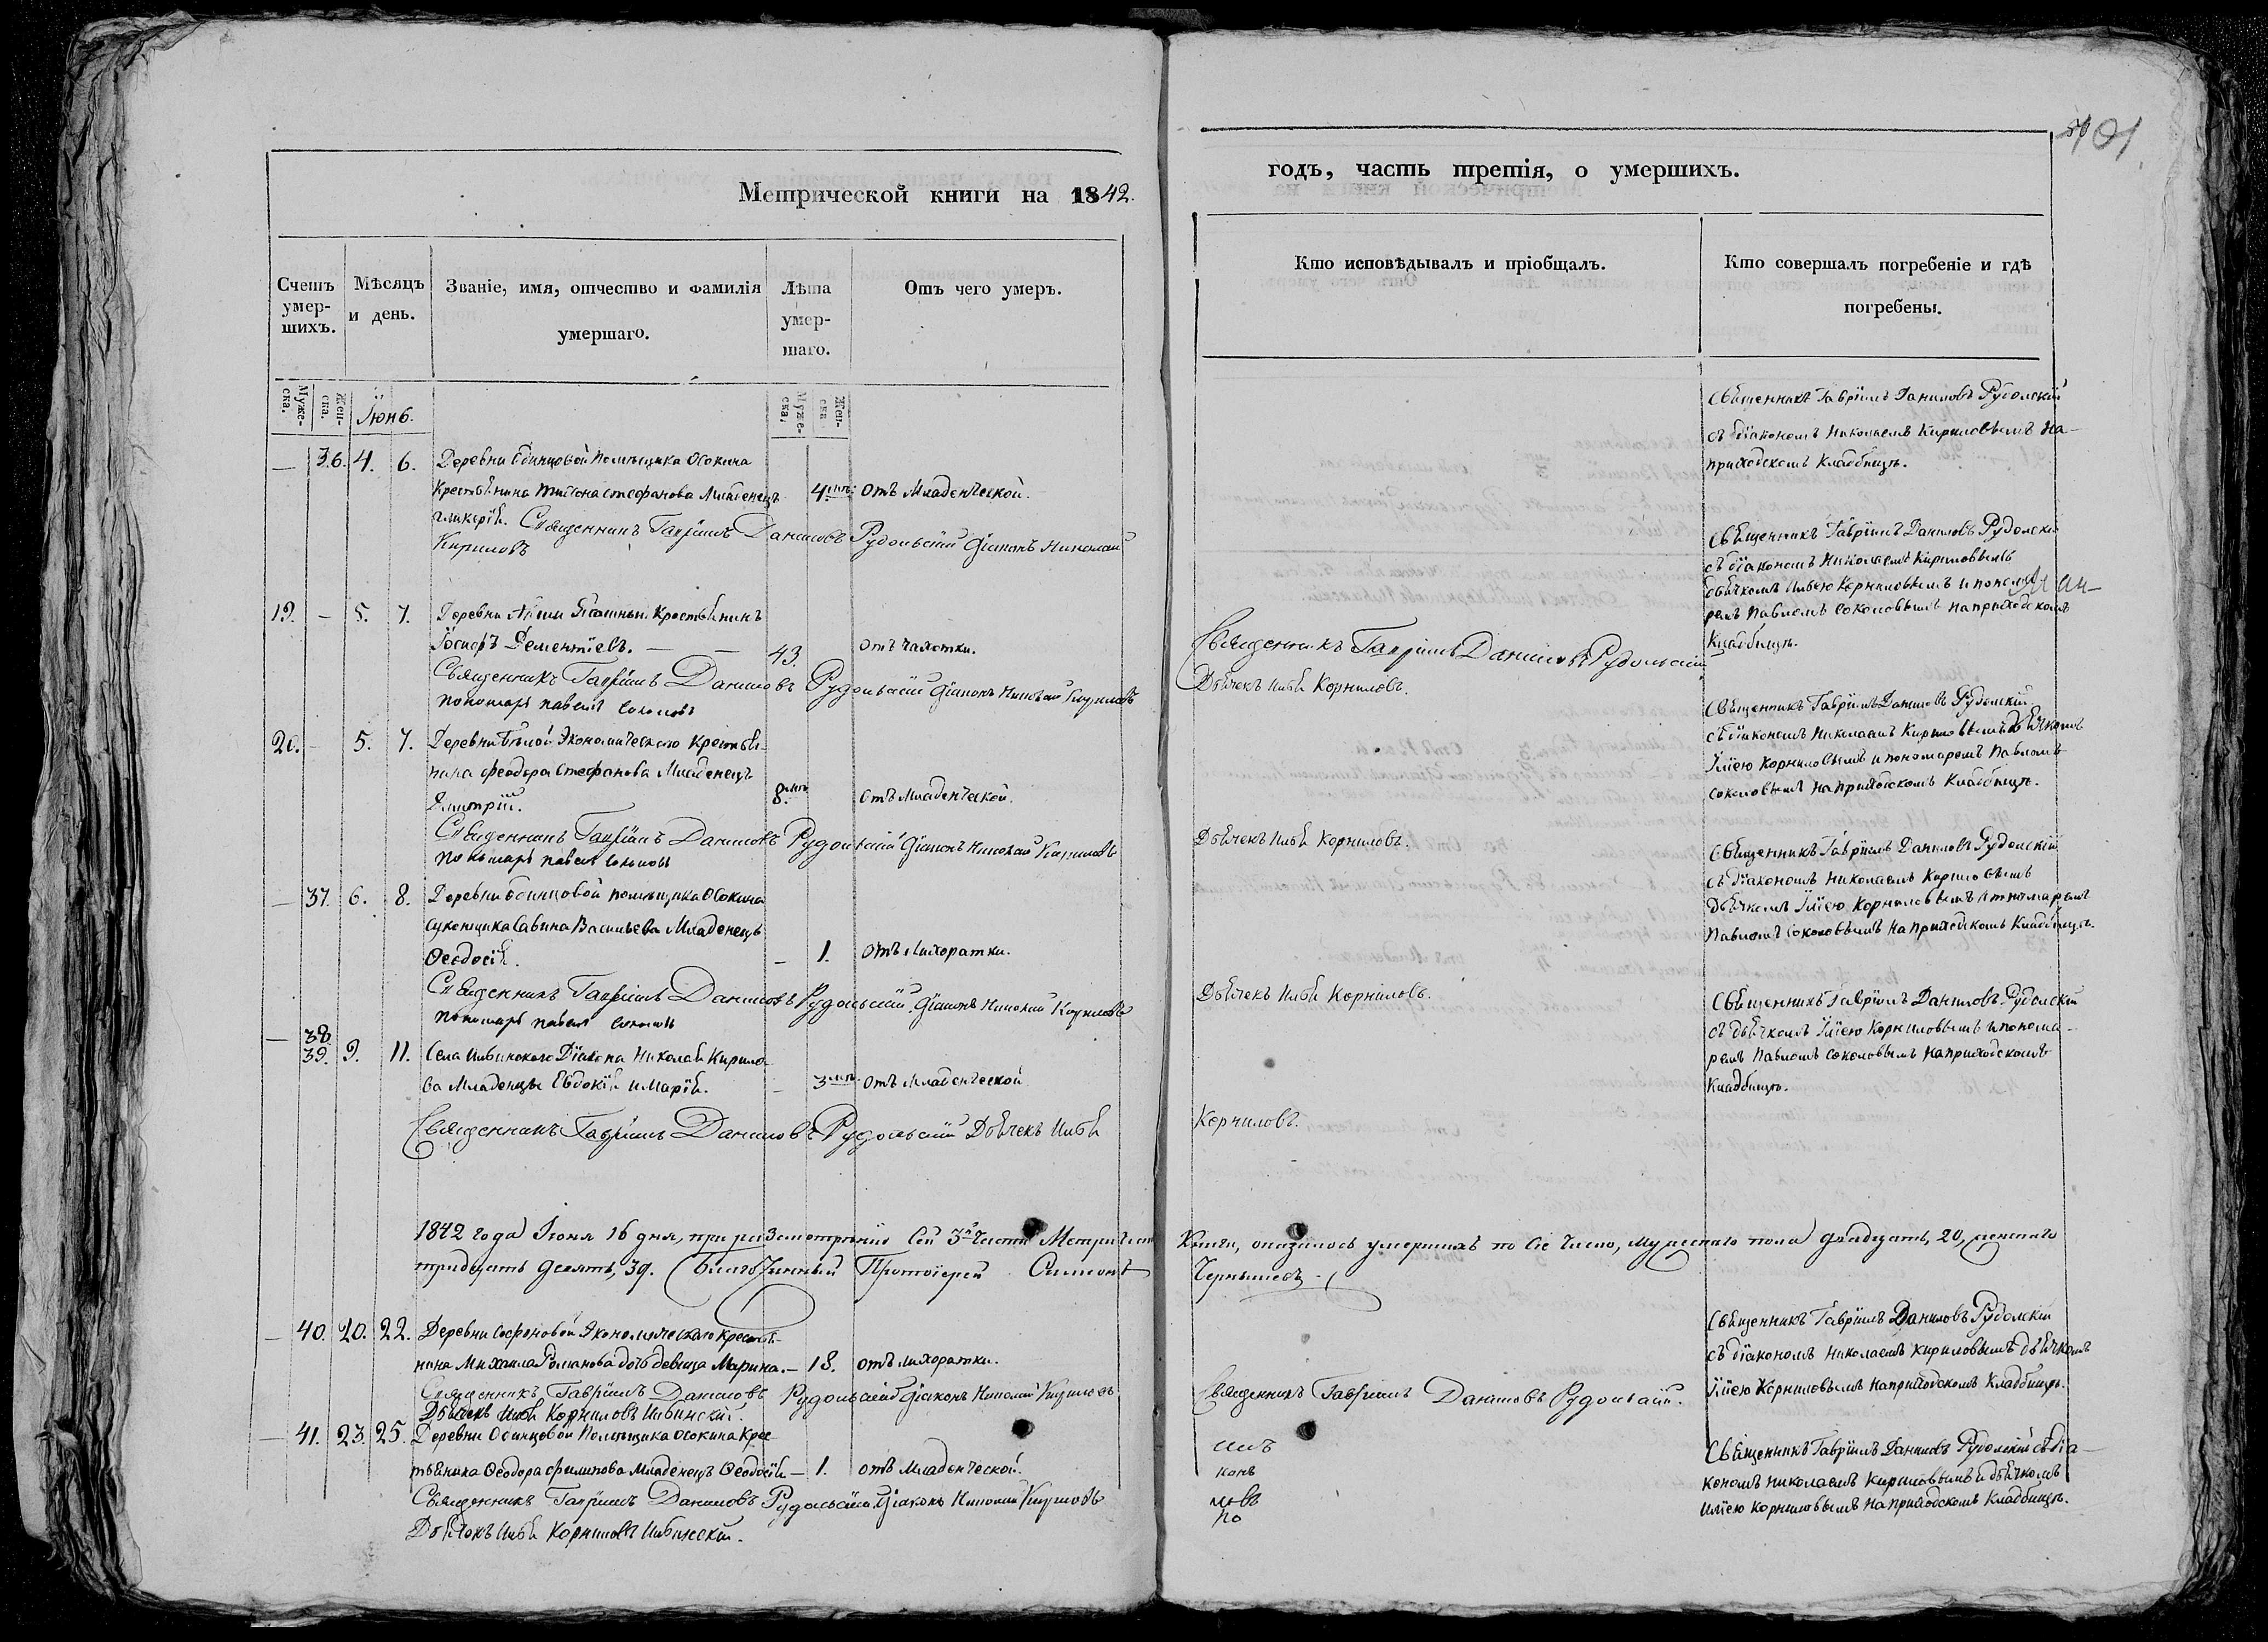 401
Метрической книги на 1842.
годъ, часть третія, о умершихъ.
Счетъ умер-шихъ.
Мѣсяцъ и день.
Званіе, имя, отчество и фамилія умершаго.
Лѣта умер-шаго.
Отъ чего умеръ.
Кто исповѣдывалъ и пріобщалъ.
Кто совершалъ погребеніе и гдѣ погребены.
Муже-ска.
Жен-ска.
Іюнь.
Муже-ска,
Жен-ска
— 36. 4. 6. Деревни Одинцовой помѣщика Осокина
крестьянина Стефанова Младенецъ 4 отъ Младенческой.
Священникъ Гавріилъ Даниловъ Рудольскій Діаконъ Николай
Кириловъ
Священникъ Гавріилъ Даниловъ Рудольскій
съ діакономъ Николаемъ Кириловымъ на-
приходскомъ кладбищѣ.
19. — 5. 7. Деревни крестьянинъ
Дементіевъ. — — 43. отъ чахотки.
Священникъ Гавріилъ Даниловъ Рудольскій Діаконъ Николай Кириловъ
пономарь Павелъ Соколовъ
Священникъ Гавріилъ Даниловъ Рудольскій
Дьячекъ Илья Корниловъ.
Священникъ Гавріилъ Даниловъ Рудольскій
съ діакономъ Николаемъ Кириловымъ
дьячкомъ Ильею Корниловымъ и поном
ремъ Павломъ Соколовымъ на приходскомъ
кладбищѣ.
20. — 5. 7. Деревни Бѣлой Экономическаго крестья-
нина Феодора Стефанова Младенецъ
Димитрій. 8. отъ Младенческой.
Священникъ Гавріилъ Даниловъ Рудольскій Діаконъ Николай Кириловъ
пономарь Павелъ Соколовъ
Дьячекъ Илья Корниловъ.
Священникъ Гавріилъ Даниловъ Рудольскій
съ діакономъ Николаемъ Кириловымъ дьячкомъ
Іліею Корниловымъ и пономаремъ Павломъ
Соколовымъ на приходскомъ кладбищѣ.
— 37. 6. 8. Деревни Одинцовой помѣщика Осокина
суконщика Савина Васильева Младенецъ
Ѳеодосія. — 1. отъ лихоратки.
Священникъ Гавріилъ Даниловъ Рудольскій Діаконъ Николай Кириловъ
пономарь Павелъ Соколовъ
Дьячекъ Илья Корниловъ.
Священникъ Гавріилъ Даниловъ Рудольскій
съ діакономъ Николаемъ Кириловымъ
дьячкомъ Іліею Корниловымъ и пономаремъ
Павломъ Соколовымъ на приходскомъ кладбищѣ.
— 38. 39. 9. 11. Села Ильинскаго Діакона Николая Кирило-
ва Младенцы Евдокія и Марія. — 3 отъ Младенческой
Священникъ Гавріилъ Даниловъ Рудольскій Дьячекъ Илья
Корниловъ.
Священникъ Гавріилъ Даниловъ Рудольскій
съ дьячкомъ Іліею Корниловымъ и понома-
ремъ Павломъ Соколовымъ на приходскомъ
кладбищѣ.
1842 года Іюня 16 дня, при разсмотрѣніи сей 3й части Метрическ
книги, оказалось умершихъ по сіе число, мужескаго пола двадцать, 20, женскаго
тридцать девять, 39. Благочинный Протоіерей Симеонъ
Чернышевъ
— 40. 20. 22. Деревни Софоновой Экономическаго крестья-
нина Михаила Романова дочь девица Марина. — 18. отъ лихоратки.
Священникъ Гавріилъ Даниловъ Рудольскій Діаконъ Николай Кириловъ
Дьячекъ Илья Корниловъ Ильинскій.
Священникъ Гавріилъ Даниловъ Рудольскій.
Священникъ Гавріилъ Даниловъ Рудольскій
съ діакономъ Николаемъ Кириловымъ дьячкомъ
Іліею Корниловымъ на приходскомъ кладбищѣ.
— 41. 23. 25. Деревни Одинцовой Помѣщика Осокина крес-
тьянина Ѳеодора Филипова Младенецъ Ѳеодосія — 1. отъ Младенческой.
Священникъ Гавріилъ Даниловъ Рудольскій Діаконъ Николай Кириловъ
Дьячокъ Илья Корниловъ Ильинскій.
Священникъ Гавріилъ Даниловъ Рудольскій съ діа-
кономъ Николаемъ Кириловымъ и дьячкомъ
Иліею Корниловымъ на приходскомъ кладбищѣ.